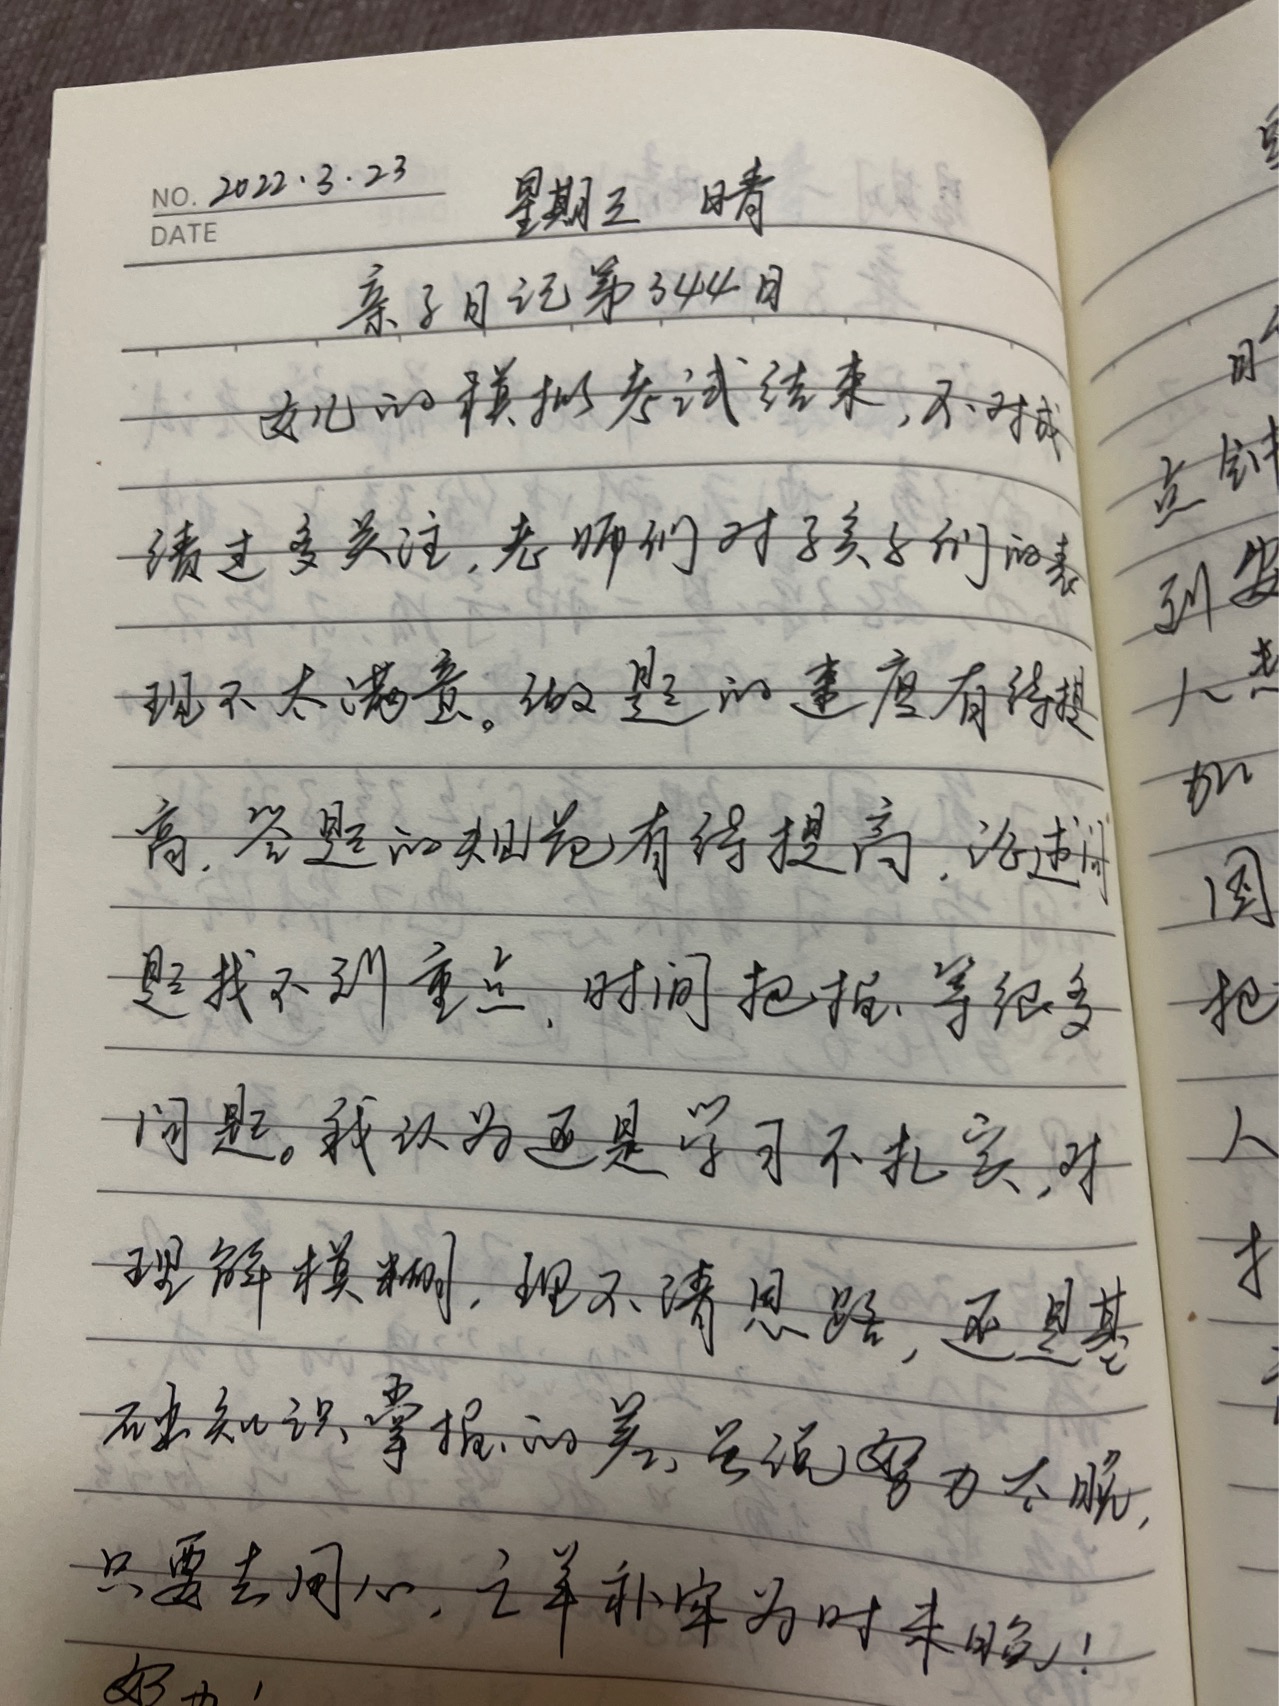 NO. 2022.3.23 星期三 晴
DATE
亲子日记第344日
女儿的模拟考试结束,不对成
绩过多关注,老师们对孩子们的表
现不太满意。做题的速度有待提
高,答题的规范有待提高,论述问
题找不到重点,时间把握等很多
问题。我认为还是学习不扎实,对
理解模糊,理不清思路,还是基
础知识掌握的差、 说努力太晚,
只要去用心,亡羊补牢为时未晚!
努力!
点钟
到安
人
加
图
把
人